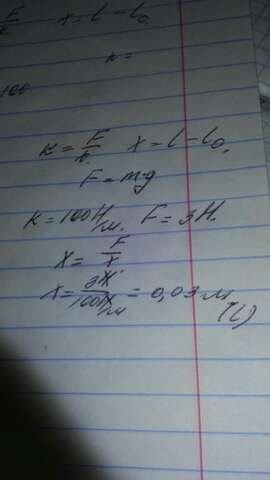 x = l - l₀
к =
100
к = F/x. x = l - l₀,
F = mg
к = 100 Н/м. F = 3Н.
x = F/x
x = 3Н/100Н/м = 0,03 м